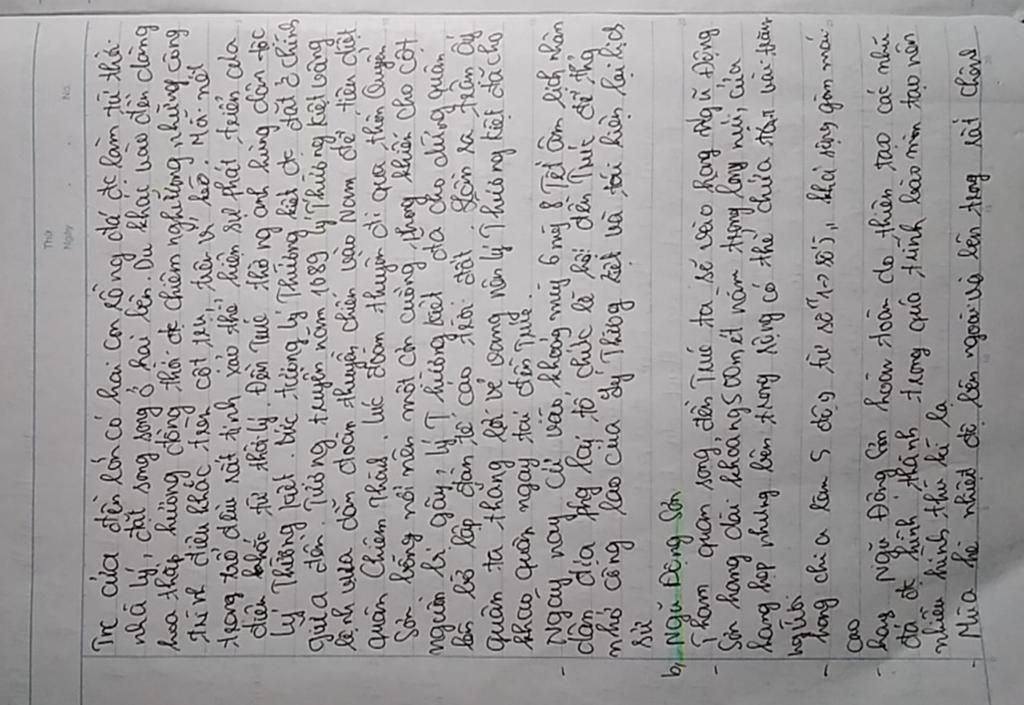 Thứ
Ngày
No.
Trc cửa đền lớn có hai con rồng đá đc làm từ thời
nhà lý, đặt song song ở hai bên. Du khách vào đền dâng
hoa thắp hương đồng thời đc chiêm ngưỡng những công
trình điêu khắc trên cột, xà, trên kèo. Mỗi nét
trang trí đều rất tinh xảo thể hiện sự phát triển của
điêu khắc từ thời lý. Đền Trúc thờ ông anh hùng dân tộc
Lý Thường kiệt. Bức tượng lý Thường kiệt đc đặt ở chính
giữa đền. Tương truyền năm 1089 lý Thường kiệt vâng
lệnh vua dẫn đoàn thuyền chiến vào Nam để tiêu diệt
quân Chiêm Thành. Lúc đoàn thuyền đi qua thôn Quyển
Sơn bỗng nổi lên một cơn cuồng phong khiến cho cột
người bị gãy, lý Thường kiệt đã cho dừng quân
lên bờ lập đàn tế cáo trời đất. Sau ra trận ấy
quân ta thắng lợi vẻ vang nên lý Thường kiệt đã cho
khao quân ngay tại đền Trúc.
- Ngày nay, cứ vào khoảng mùng 6 mùng 8 Tết âm lịch nhân
dân địa phg lại tổ chức lễ hội đền Trúc để thg
nhớ công lao của lý Thường kiệt và tái hiện lại lịch
sử
b, Ngũ Động Sơn
- Thăm quan xong đền Trúc ta sẽ vào hang Ngũ Động
Sơn hang dài khoảng 500m, nằm trong lòng núi, cửa
hang hẹp nhưng bên trong rộng có thể chứa tận vài trăm
người.
- hang chia làm 5 động từ số 1 -> số 5, khai rộng gồm mái
cao
- hang Ngũ Động Sơn hoàn toàn do thiên tạo các nhũ
đá đc hình thành trong quá trình bào mòn tạo nên
nhiều hình thù kì lạ
- Mùa hè nhiệt độ bên ngoài và bên trong rất chênh